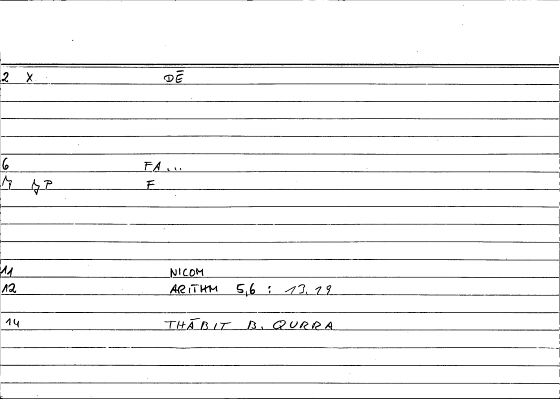 2 X DĒ
6 FA...
7 F
11 NICOM
12 ARITHM 5,6 : 13,19
14 THĀBIT B. QURRA